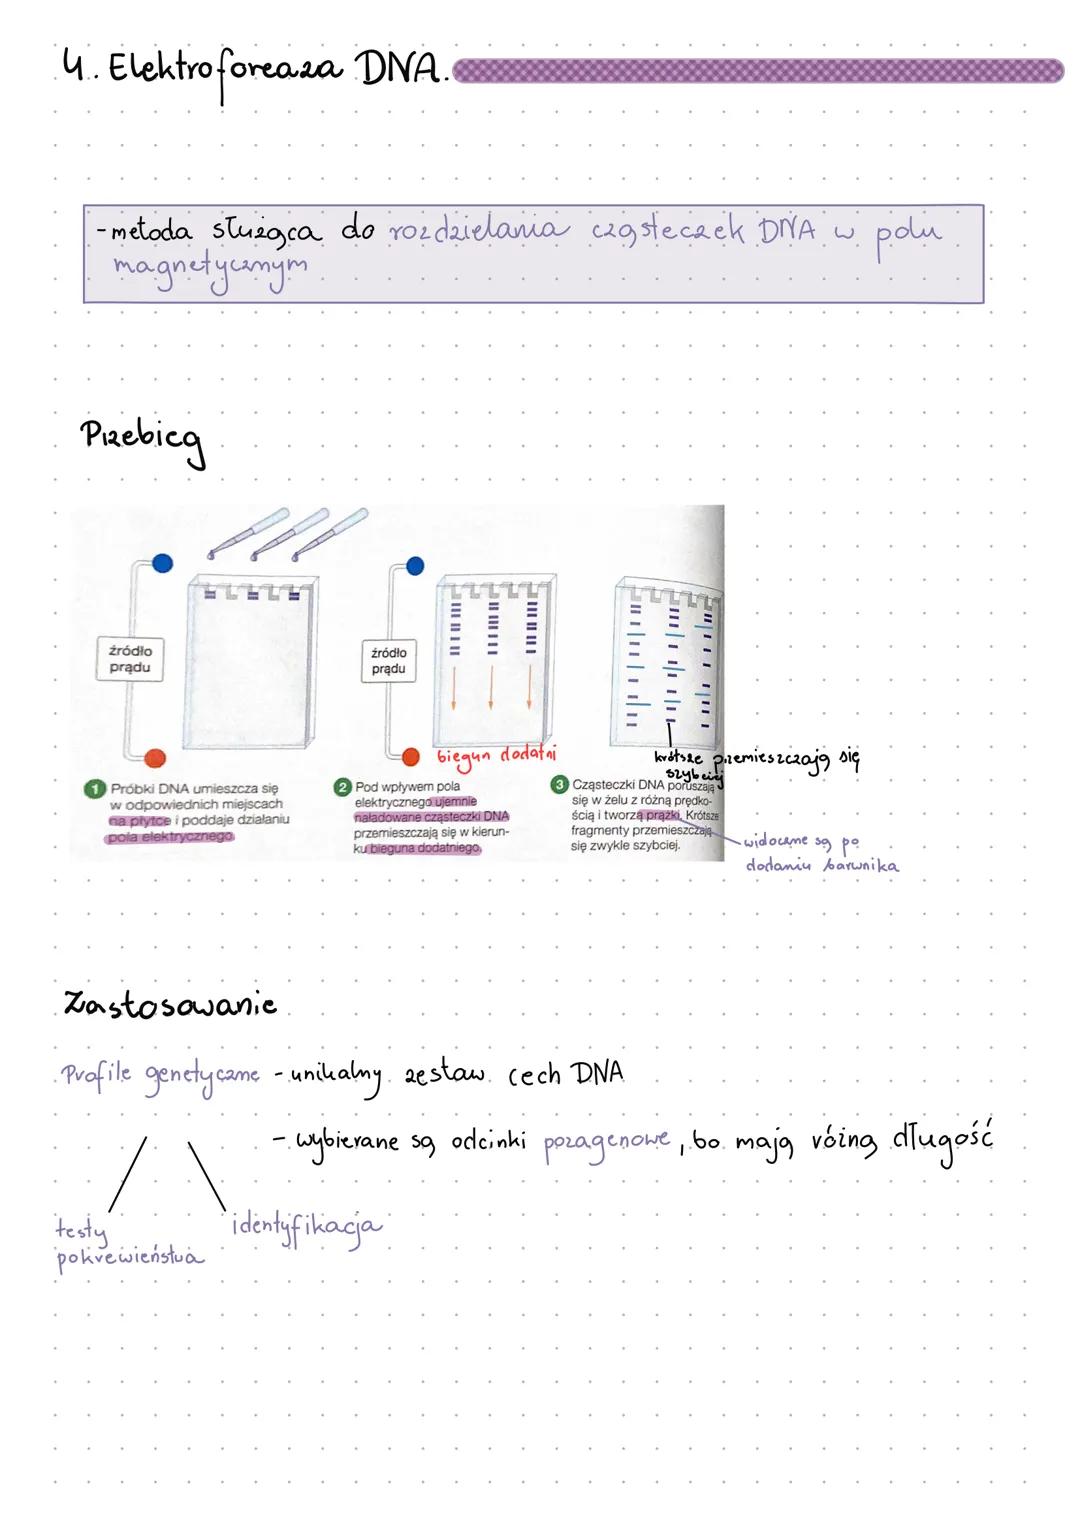 4. Elektroforeaza DNA.
-metoda służąca do rozdzielania cząsteczek DNA w polu
magnetycznym
Przebieg
źródło
prądu
źródło
prądu
biegun dodatni
krótsze przemieszczają się
szybciej
1 Próbki DNA umieszcza się
w odpowiednich miejscach
na płytce i poddaje działaniu
pola elektrycznego.
2 Pod wpływem pola
elektrycznego ujemnie
naładowane cząsteczki DNA
przemieszczają się w kierun-
ku bieguna dodatniego.
3 Cząsteczki DNA poruszają
się w żelu z różną prędko-
ścią i tworzą prążki. Krótsze
fragmenty przemieszczają
się zwykle szybciej.
-widoczne są po
dodaniu barwnika
Zastosowanie
Profile genetyczne - unikalny zestaw cech DNA
- wybierane są odcinki pozagenowe, bo mają różną długość
testy
pokrewieństwa
identyfikacja